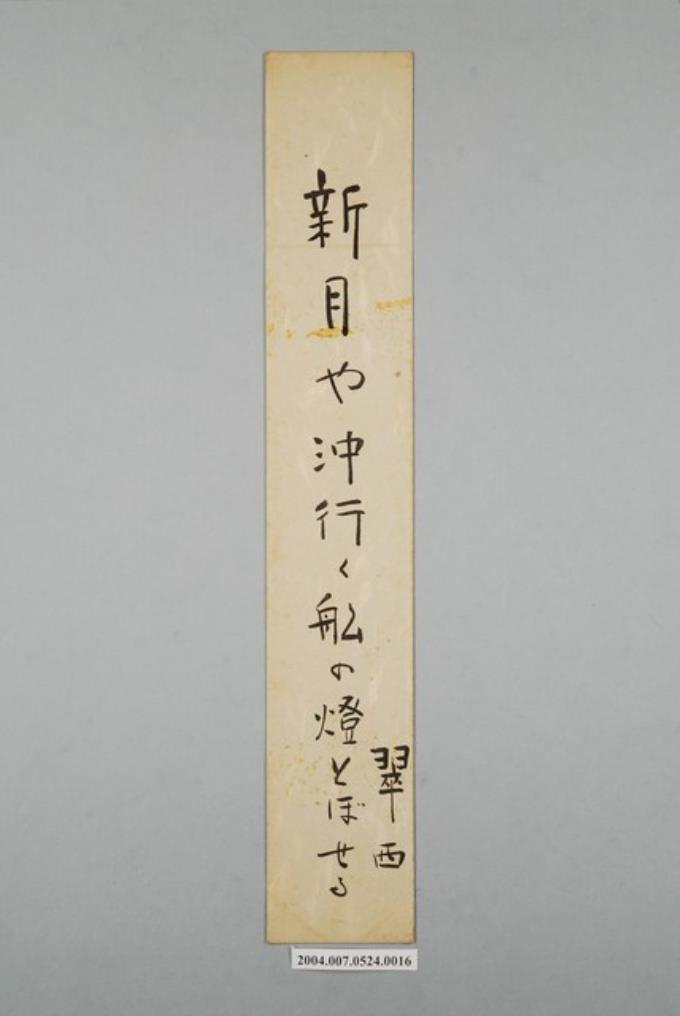 新月や沖行く舩の燈とぼせる
翠西
2004.007.0524.0016